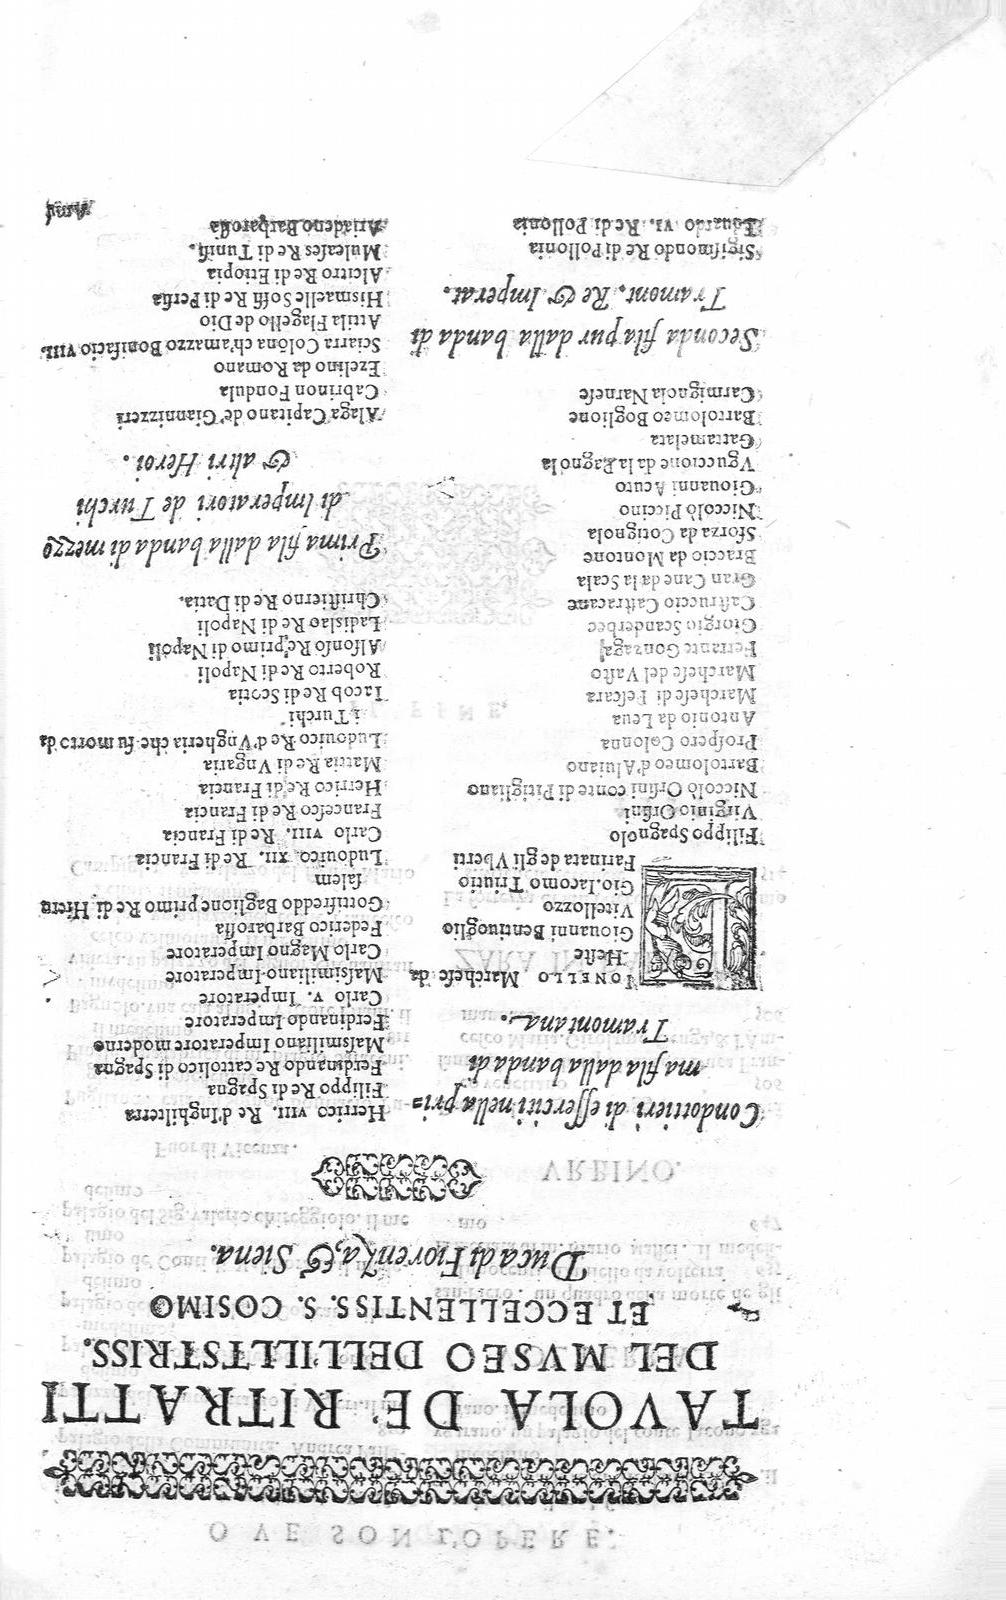 TAVOLA DE' RITRATTI
DEL MVSEO DELL'ILLVSTRISS.
ET ECCELLENTISS. S. COSIMO
Duca di Fiorenza, & Siena.
Condottieri di esserciti nella pri=
ma fila dalla banda di
Tramontana.
TONELLO Marchese da
Heste
Giouanni Bentiuoglio
Vitellozzo
Gio. Iacomo Triultio
Farinata de gli Vberti
Filippo Spagnolo
Virginio Orsini
Niccolò Orsini conte di Pitigliano
Bartolomeo d'Aluiano
Prospero Colonna
Antonio da Leua
Marchese di Pescara
Marchese del Vasto
Ferrante Gonzaga
Giorgio Scanderbec
Castruccio Castracane
Gran Cane da la Scala
Braccio da Montone
Sforza da Cotignola
Niccolò Piccino
Giouanni Acuto
Vguccione da la Fagnola
Gattamelata
Bartolomeo Boglione
Carmignola Narnese
Seconda fila pur dalla banda di
Tramont. Re & Imperat.
Sigismondo Re di Pollonia
Eduardo VI. Re di Pollonia
Herrico VIII. Re d'Inghilterra
Filippo Re di Spagna
Ferdinando Re cattolico di Spagna
Massimiliano Imperatore moderno
Ferdinando Imperatore
Carlo V. Imperatore
Massimiliano Imperatore
Carlo Magno Imperatore
Federico Barbarossa
Gottifreddo Baglione primo Re di Hieru
salem
Ludouico XII. Re di Francia
Carlo VIII. Re di Francia
Francesco Re di Francia
Herrico Re di Francia
Mattia Re di Vngaria
Ludouico Re d'Vngheria che fu morto da
i Turchi
Iacob Re di Scotia
Roberto Re di Napoli
Alfonso Re primo di Napoli
Ladislao Re di Napoli
Christierno Re di Datia.
Prima fila dalla banda di mezzo
di Imperatori de Turchi
& altri Heroi.
Alaga Capitano de' Giannizzeri
Cabrinon Fondula
Ezelino da Romano
Sciarra Colōna ch'amazzo Bonifacio VIII.
Attila Flagello de Dio
Hismaelle Soffi Re di Persia
Alcitro Re di Etiopia
Muleasses Re di Tunisi.
Ariadeno Barbarossa
Amu